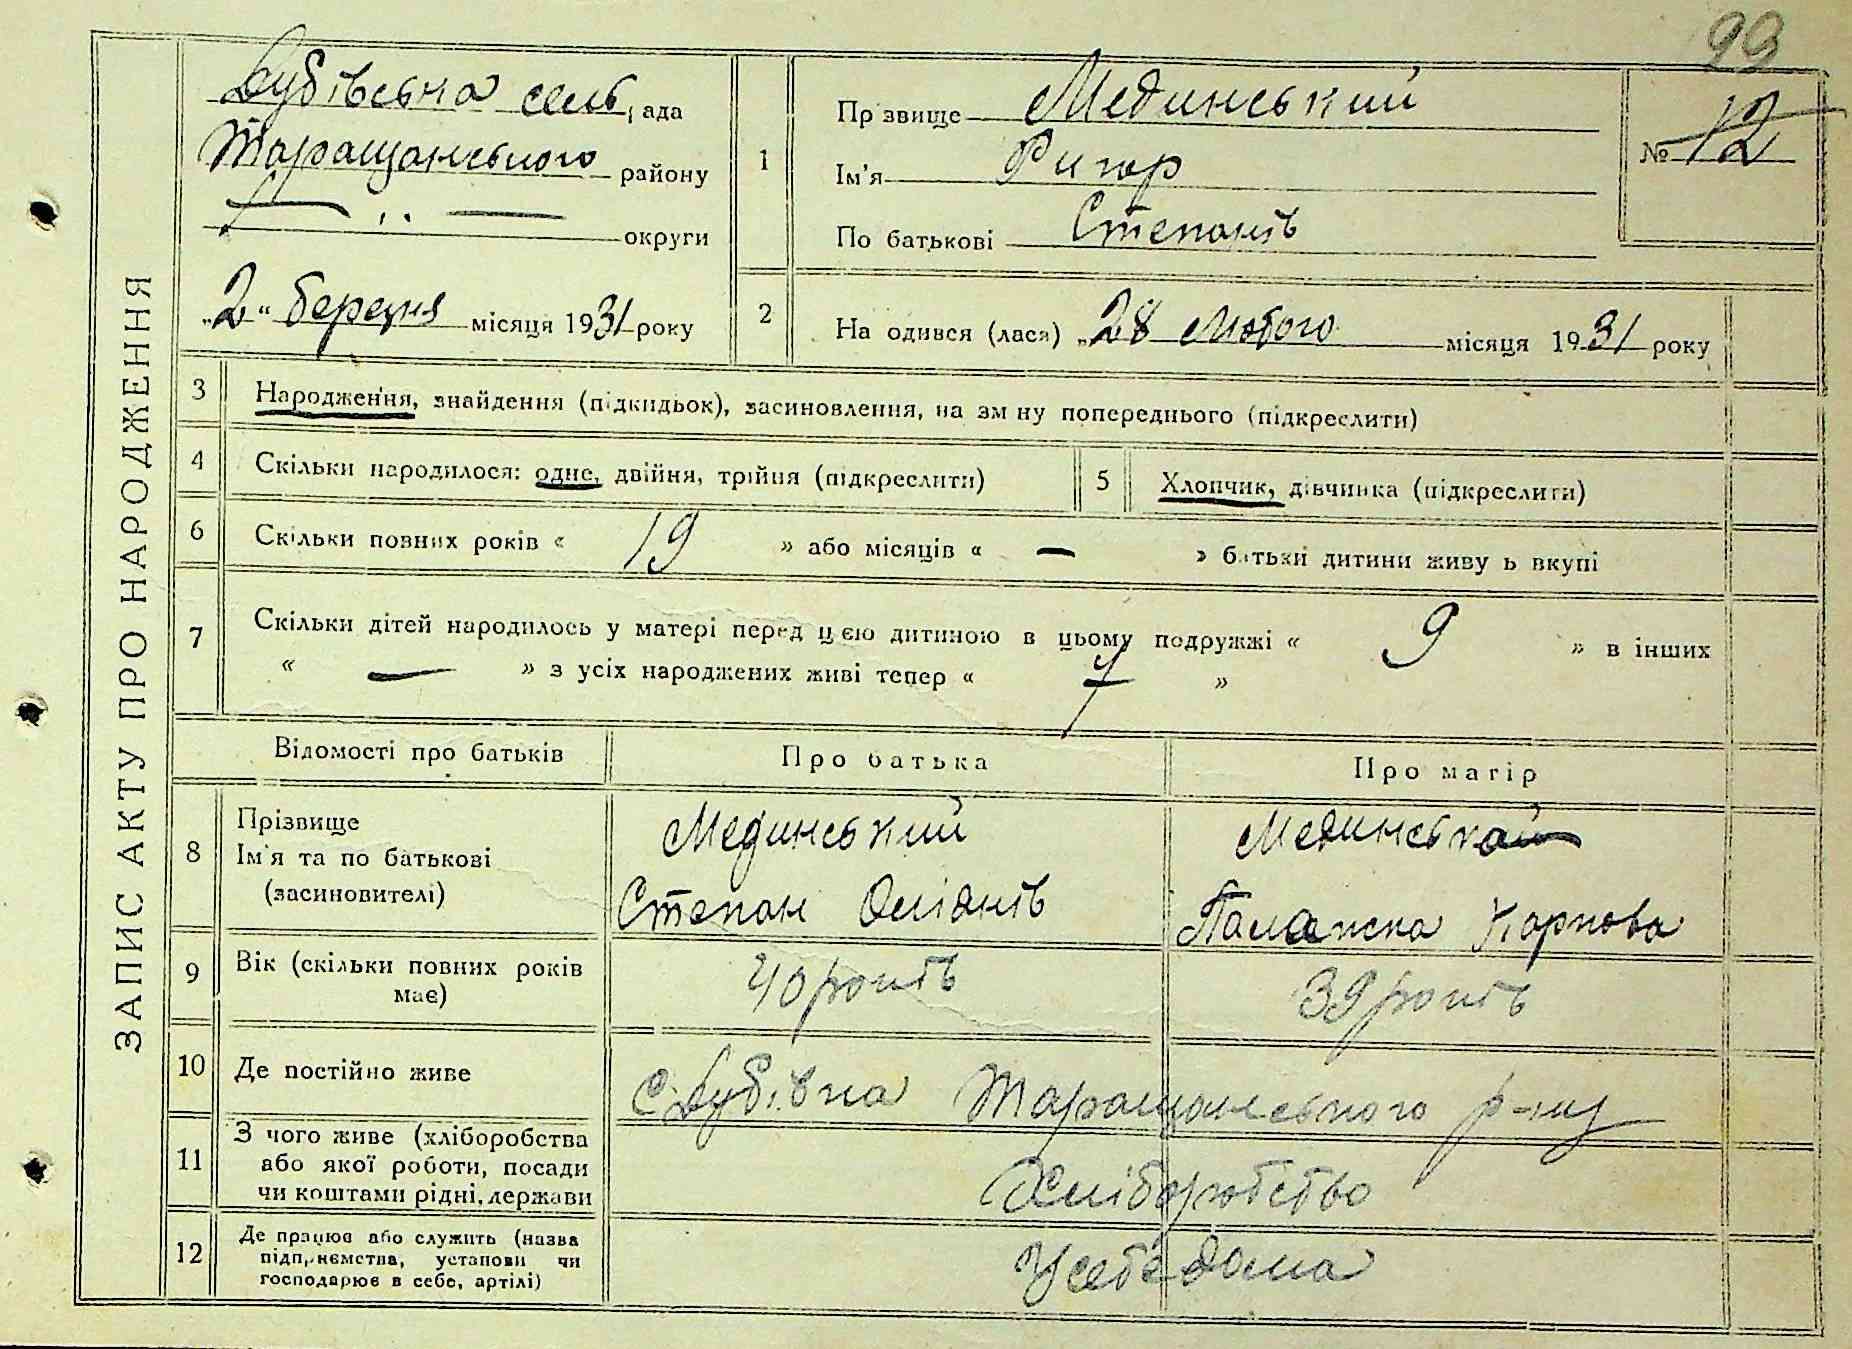 99
Дубівська сель рада
Таращанського району
округи
„2“ березня місяця 1931 року
1
Прізвище Мединський
Ім'я Ригор
По батькові Степанів
№ 12
2
На одився (лася) „28 Лютого місяця 1931 року
ЗАПИС АКТУ ПРО НАРОДЖЕННЯ
3 Народження, знайдення (підкидьок), засиновлення, на зм ну попереднього (підкреслити)
4 Скільки народилося: одне, двійня, трійня (підкреслити) 5 Хлопчик, дівчинка (підкреслити)
6 Скільки повних років « 19 » або місяців « — » батьки дитини живу ь вкупі
7 Скільки дітей народилось у матері перед цією дитиною в цьому подружжі « 9 » в інших
« — » з усіх народжених живі тепер « 7 »
Відомості про батьків Про батька Про матір
8 Прізвище Мединський Мединська
Ім'я та по батькові
(засиновителі) Степан Карпова
9 Вік (скільки повних років 40 років 39 років
має)
10 Де постійно живе с. Дубівка Таращанського р-ну
11 З чого живе (хліборобства
або якої роботи, посади Хліборобство
чи коштами рідні, держави
12 Де працює або служить (назва
підприємства, установи чи У себе дома
господарює в себе, артілі)